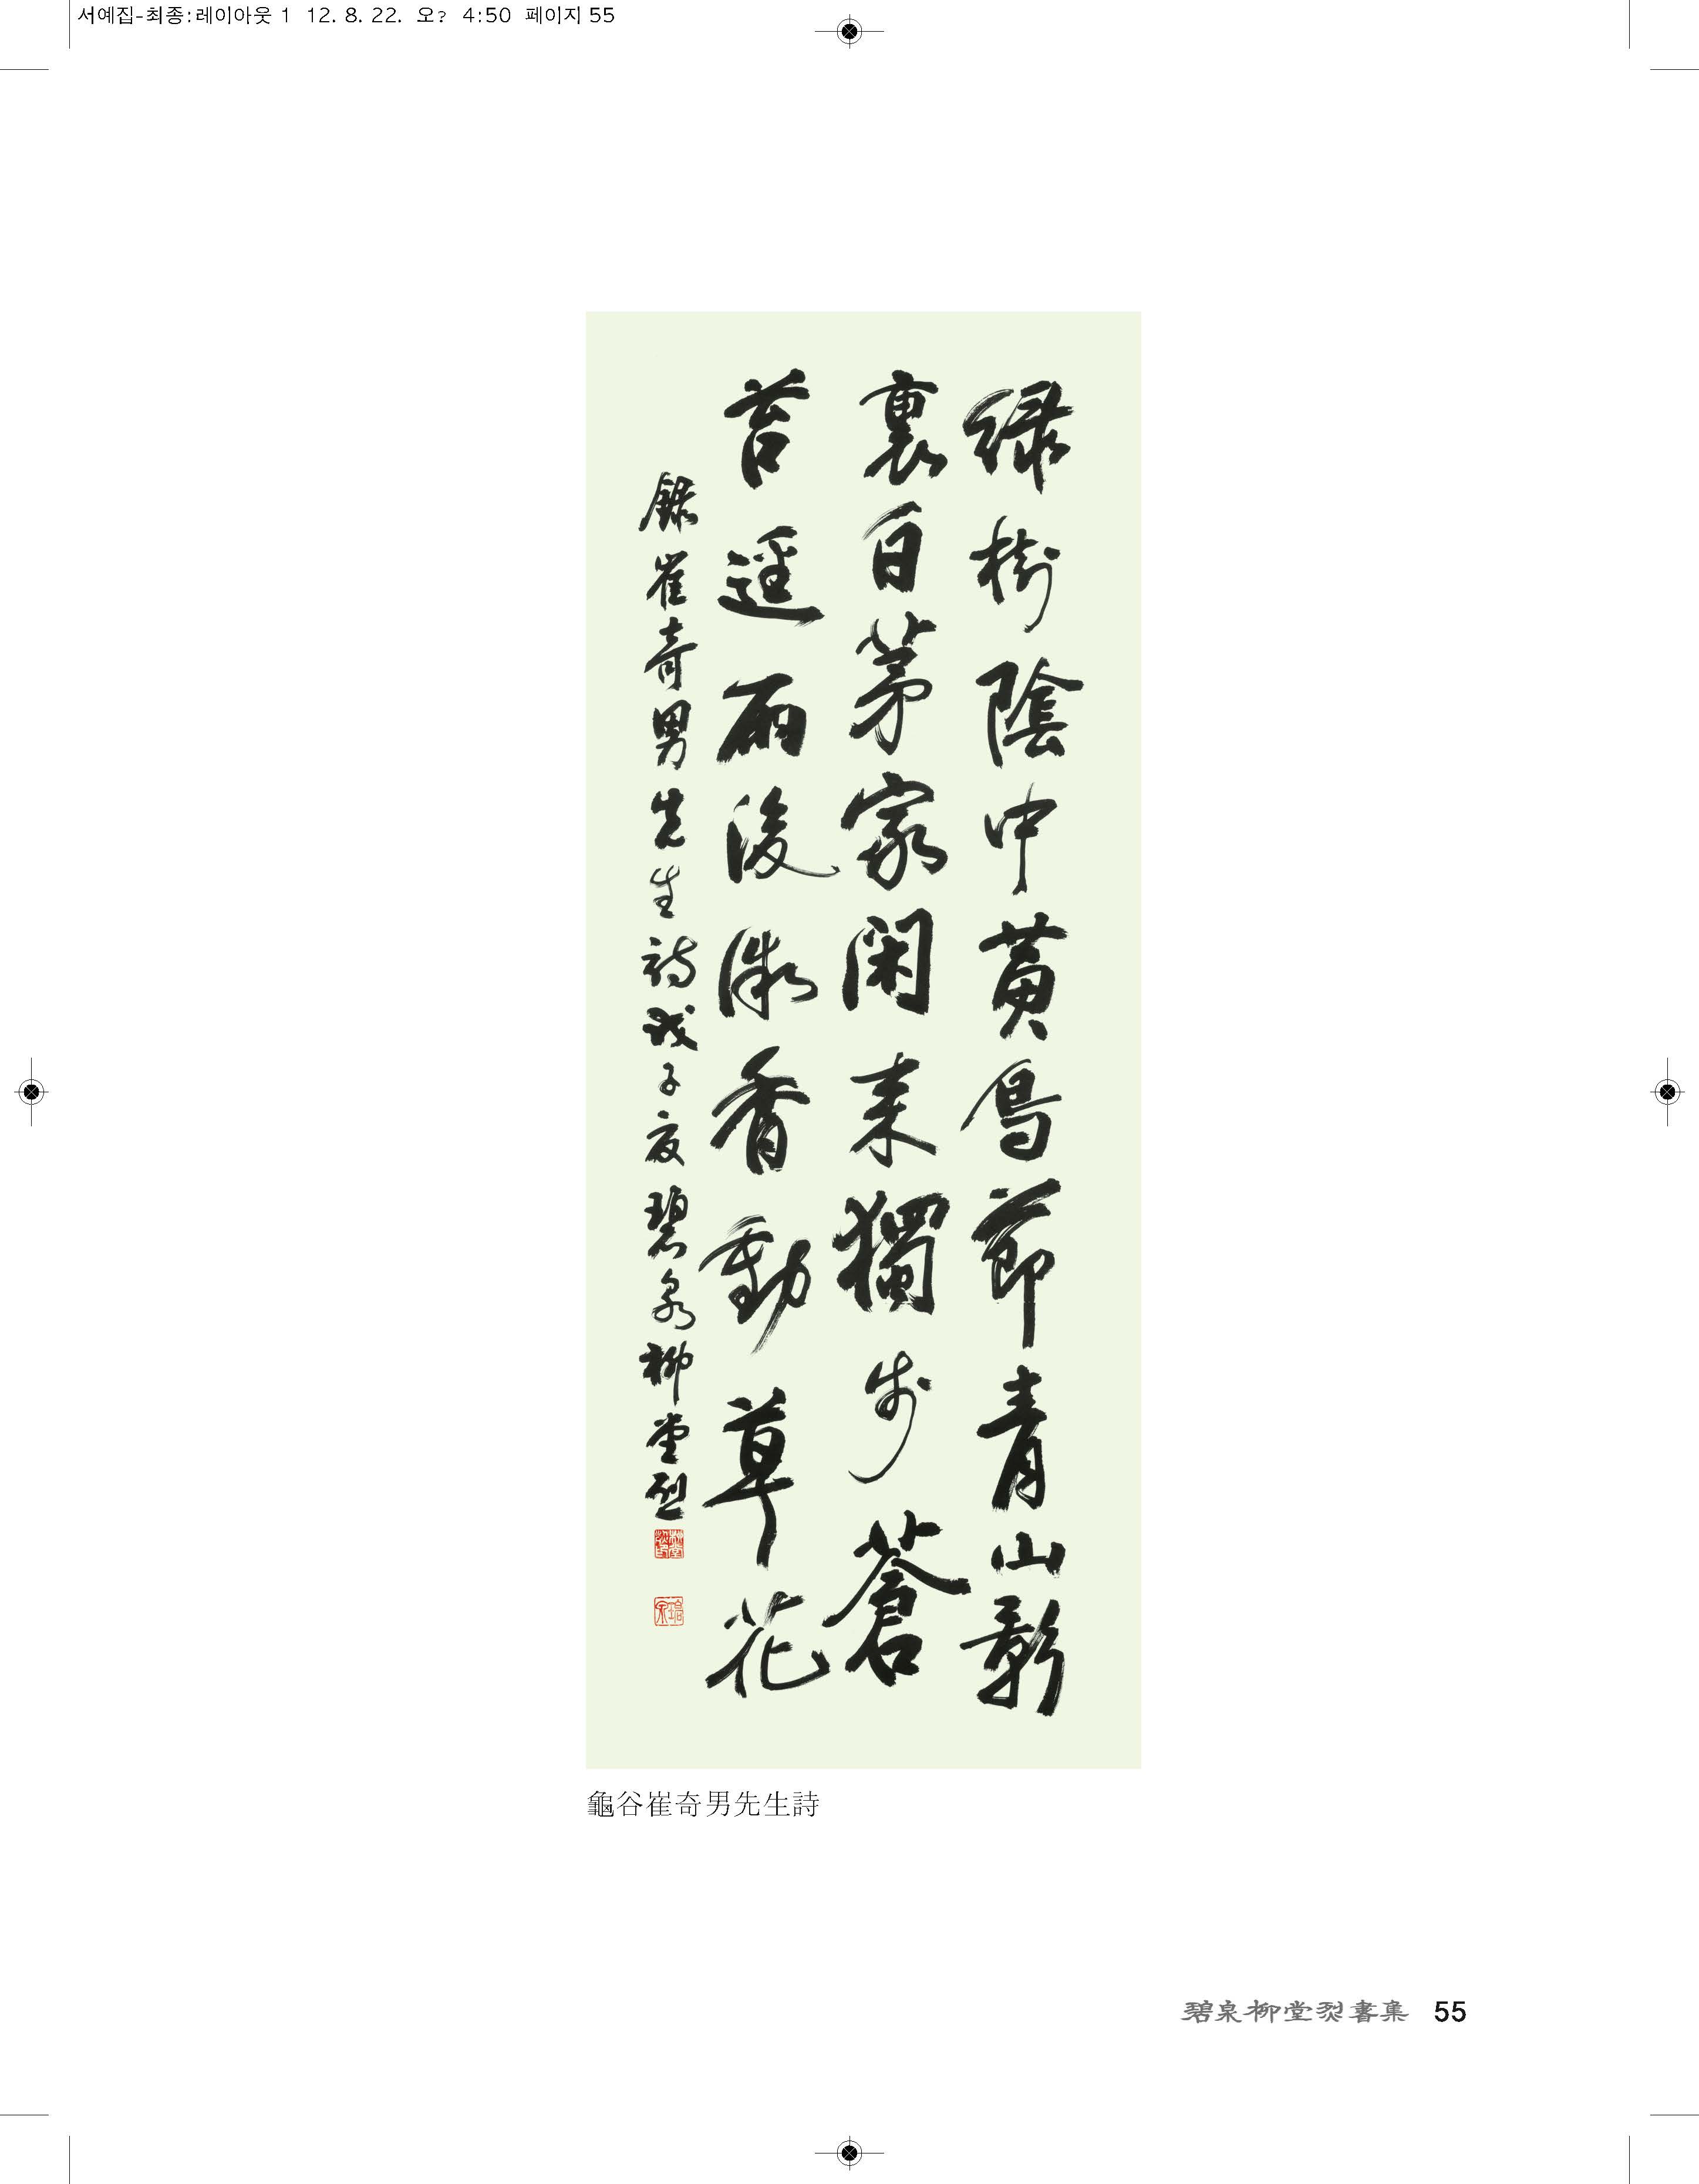 서예집-최종:레이아웃 1 12. 8. 22. 오? 4:50 페이지 55
緑樹陰中黃鳥節青山影
裏白茅家閑来獨步蒼
苔逕雨後微香動草花
錄崔奇男先生詩戊子夏碧泉柳堂烈
龜谷崔奇男先生詩
碧泉柳堂烈書集 55